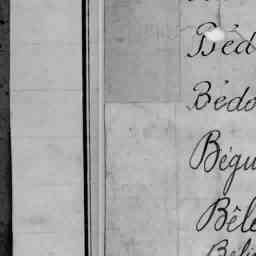 Béd
Bédo
Bégu
Bêle
Béli